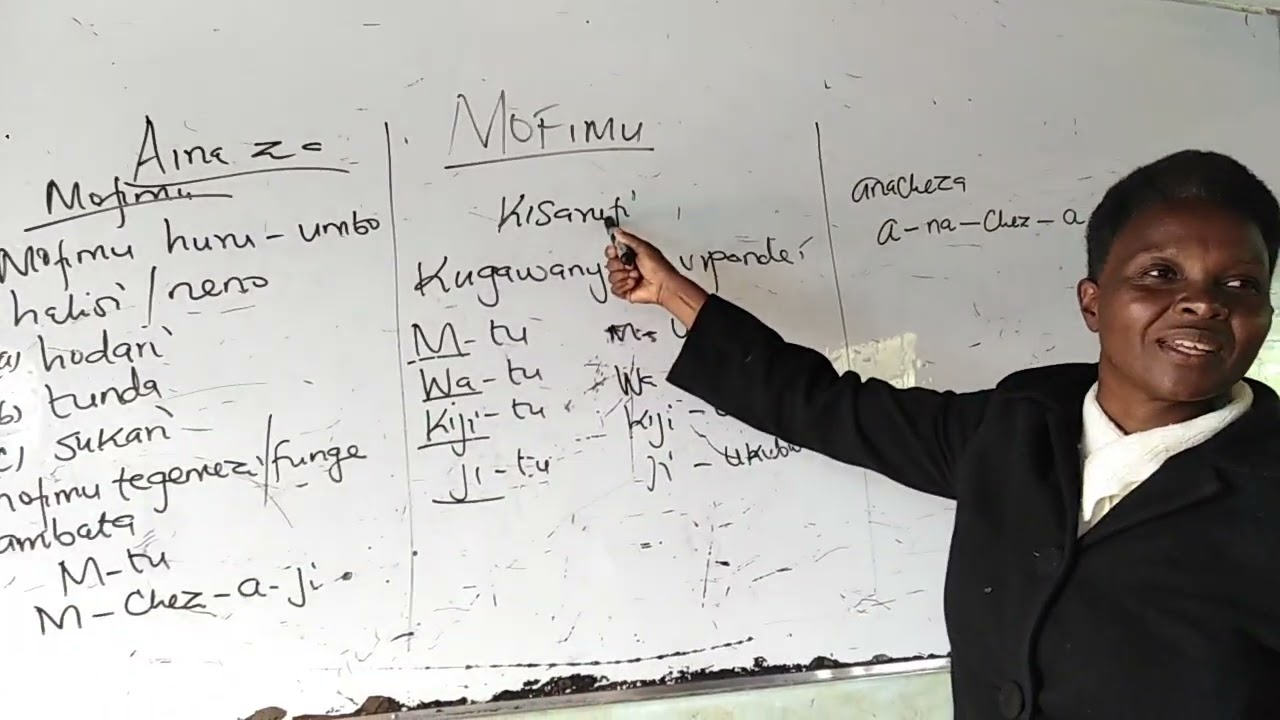 Aina za
Mofimu
Mofimu huru - umbo
halisi / neno
a) hodari
b) tunda
c) sukari
mofimu tegemezi/funge
ambata
M-tu
M-chez-a-ji
MOFIMU
Kisarufi
Kugawany vipande
M-tu
Wa-tu
Kiji-tu
Ji-tu
M-
Wa
Kiji -
Ji - ukubwa
anacheza
a-na-chez-a